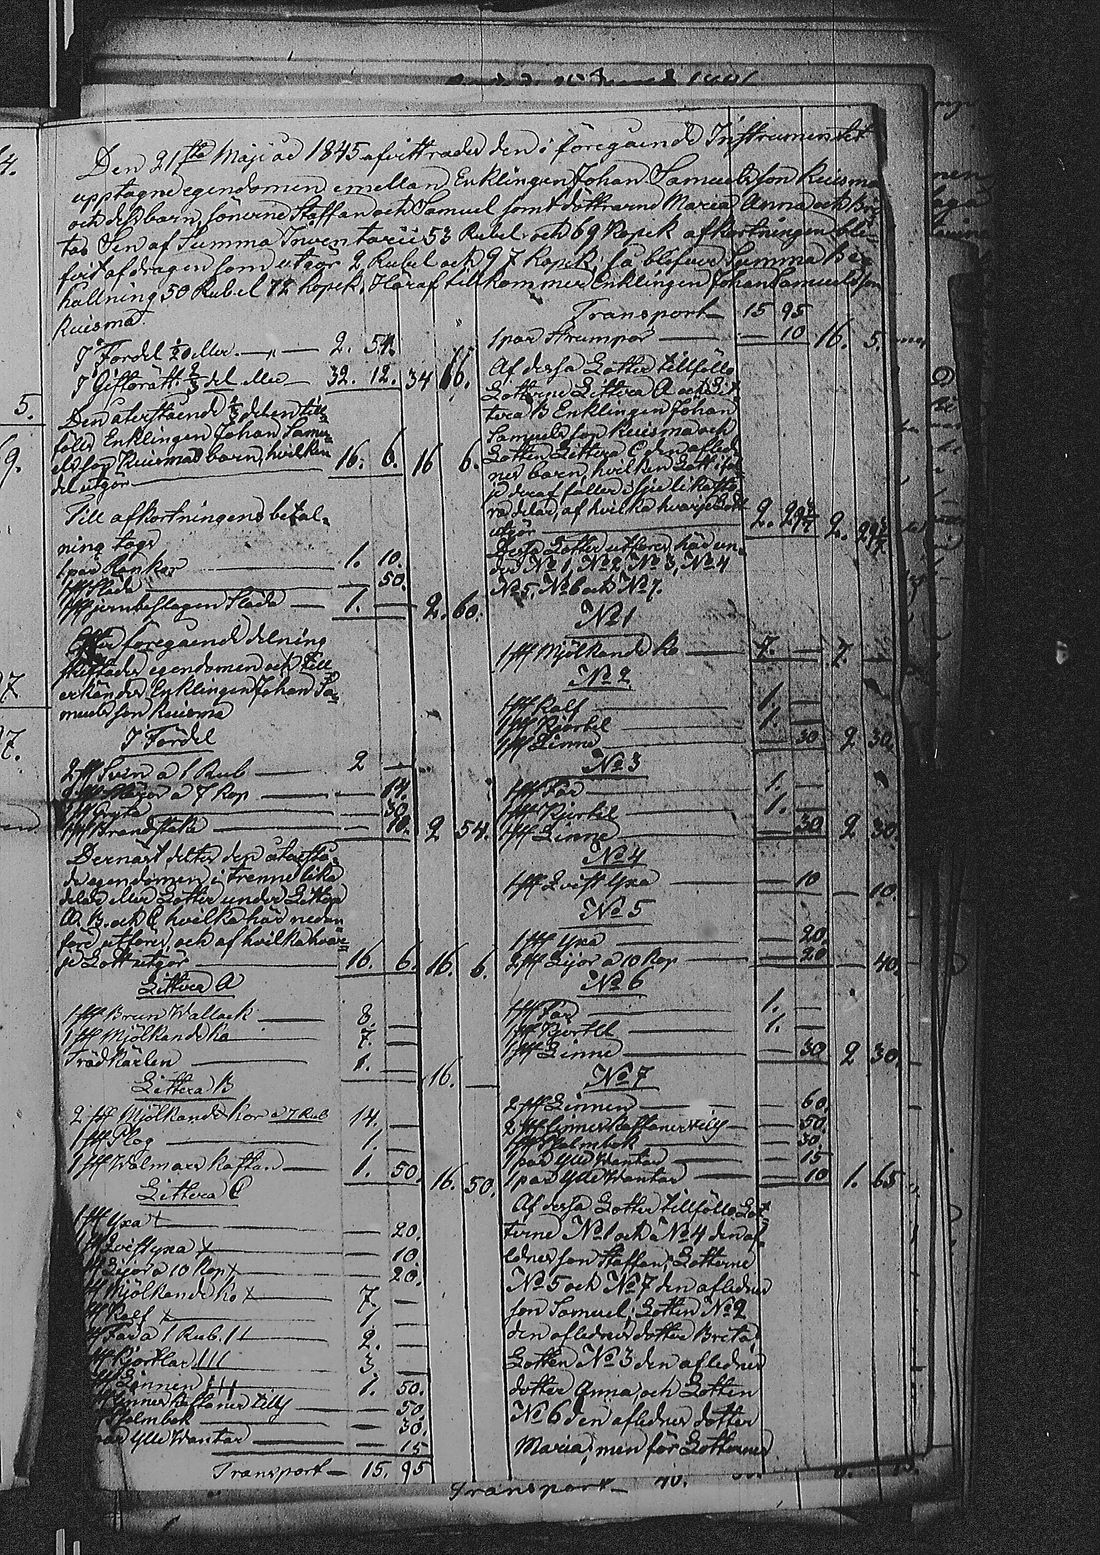 Den 21sta Maji år 1845 afvittrades den i föregående Instrumentet
upptagne egendomen emellan Enklingen Johan Samuelsson Ruisma
och dess barn, sönerne Staffan och Samuel samt döttrarne Maria Anna och Bri-
ta. Sen af Summa Inventarii 53 Rubel och 69 Kopek afkortningen ble-
fvit afdragen som utgör 2 Rubel och 97 Kopek, så blifver Summa Be-
hållning 50 Rubel 72 Kopek. Häraf tillkommer Enklingen Johan Samuelsson
Ruisma.
I Fördel 1/20 eller 2. 54.
I Giftorätt 2/3 del eller 32. 12. 34 66.
Den återstående 1/3 delen till-
föll Enklingen Johan Samu-
elsson Ruismas barn, hvilken
del utgör 16. 6. 16 6.
Till afkortningens betal-
ning togs
1 par Rankor 1. 10.
1 st Släda 50.
1 st jernbeslagen Släda 1. — 2. 60.
Efter föregående delning
skiftades egendomen och till-
erkändes Enklingen Johan Sa-
muelsson Ruisma
I Fördel
2 st Svin a 1 Rub 2 —
2 st Lijor a 7 Kop — 14.
1 st Gryta — 30.
1 st Brandstake — 10. 2 54.
Dernäst deltes den återstå-
de egendomen i trenne lika
delar eller Lotter under Littera
A. B. och C, hvilka här nedan-
före utföres, och af hvilka hvar-
je Lott utgör 16. 6. 16. 6.
Littera A
1 st Brun Wallack 8 —
1 st Mjölkande ko 7 —
Trädkärlen 1. — 16. —
Littera B
2 st Mjölkande kor a 7 Rub 14. —
1 st Plog 1. —
1 st Walmars kaftan 1. 50. 16. 50.
Littera C
1 st Yxa — 20.
1 st Qvistyxa — 10
2 st Lijor a 10 Kop — 20.
1 st Mjölkande ko 7 —
1 st Kalf 1 —
2 st Får a 1 Rub. 2. —
3 st Kjortlar 3 —
Linnen 1. 50.
Linneskaftaner tills — 50.
Psalmbok — 30.
par Ylle Wantar — 15
Transport 15. 95
Transport 15 95
1 par Strumpor — 10 16. 5.
Af dessa Lotter tillföllo
Lotterne Littera A och Lit-
tera B Enklingen Johan
Samuelsson Ruisma och
Lotten Littera C dess afled-
nes barn, hvilken Lott
deraf faller i sju lika sto-
ra delar, af hvilka hvarje Lott
utgör 2. 29 2/7 2. 29 2/7
Dessa Lotter utföres här un-
der No 1, No 2, No 3, No 4
No 5, No 6 och No 7.
No 1
1 st Mjölkande ko 7. — 7. —
No 2
1 st Kalf 1 —
1 st Kjortel 1. —
1 st Linne — 30 2 30.
No 3
1 st Får 1. —
1 st Kjortel 1. —
1 st Linne — 30 2 30.
No 4
1 st Qvist Yxa — 10 — 10.
No 5
1 st Yxa — 20.
2 st Lijor a 10 Kop — 20 — 40.
No 6
1 st Får 1. —
1 st Kjortel 1. —
1 st Linne — 30 2 30.
No 7
2 st Linnen — 60.
2 st Linneskaftaner tills — 50.
1 st Psalmbok — 30.
1 par Ylle Wantar — 15
1 par Ylle Wantar — 10 1. 65
Af dessa Lotter tillföllo Lot-
terne No 1 och No 4 den af-
lednes son Staffan, Lotterne
No 5 och No 7 den aflednes
son Samuel, Lotten No 2
den aflednes dotter Brita
Lotten No 3 den aflednes
dotter Anna, och Lotten
No 6 den aflednes dotter
Maria, men för Lotterne
Transport